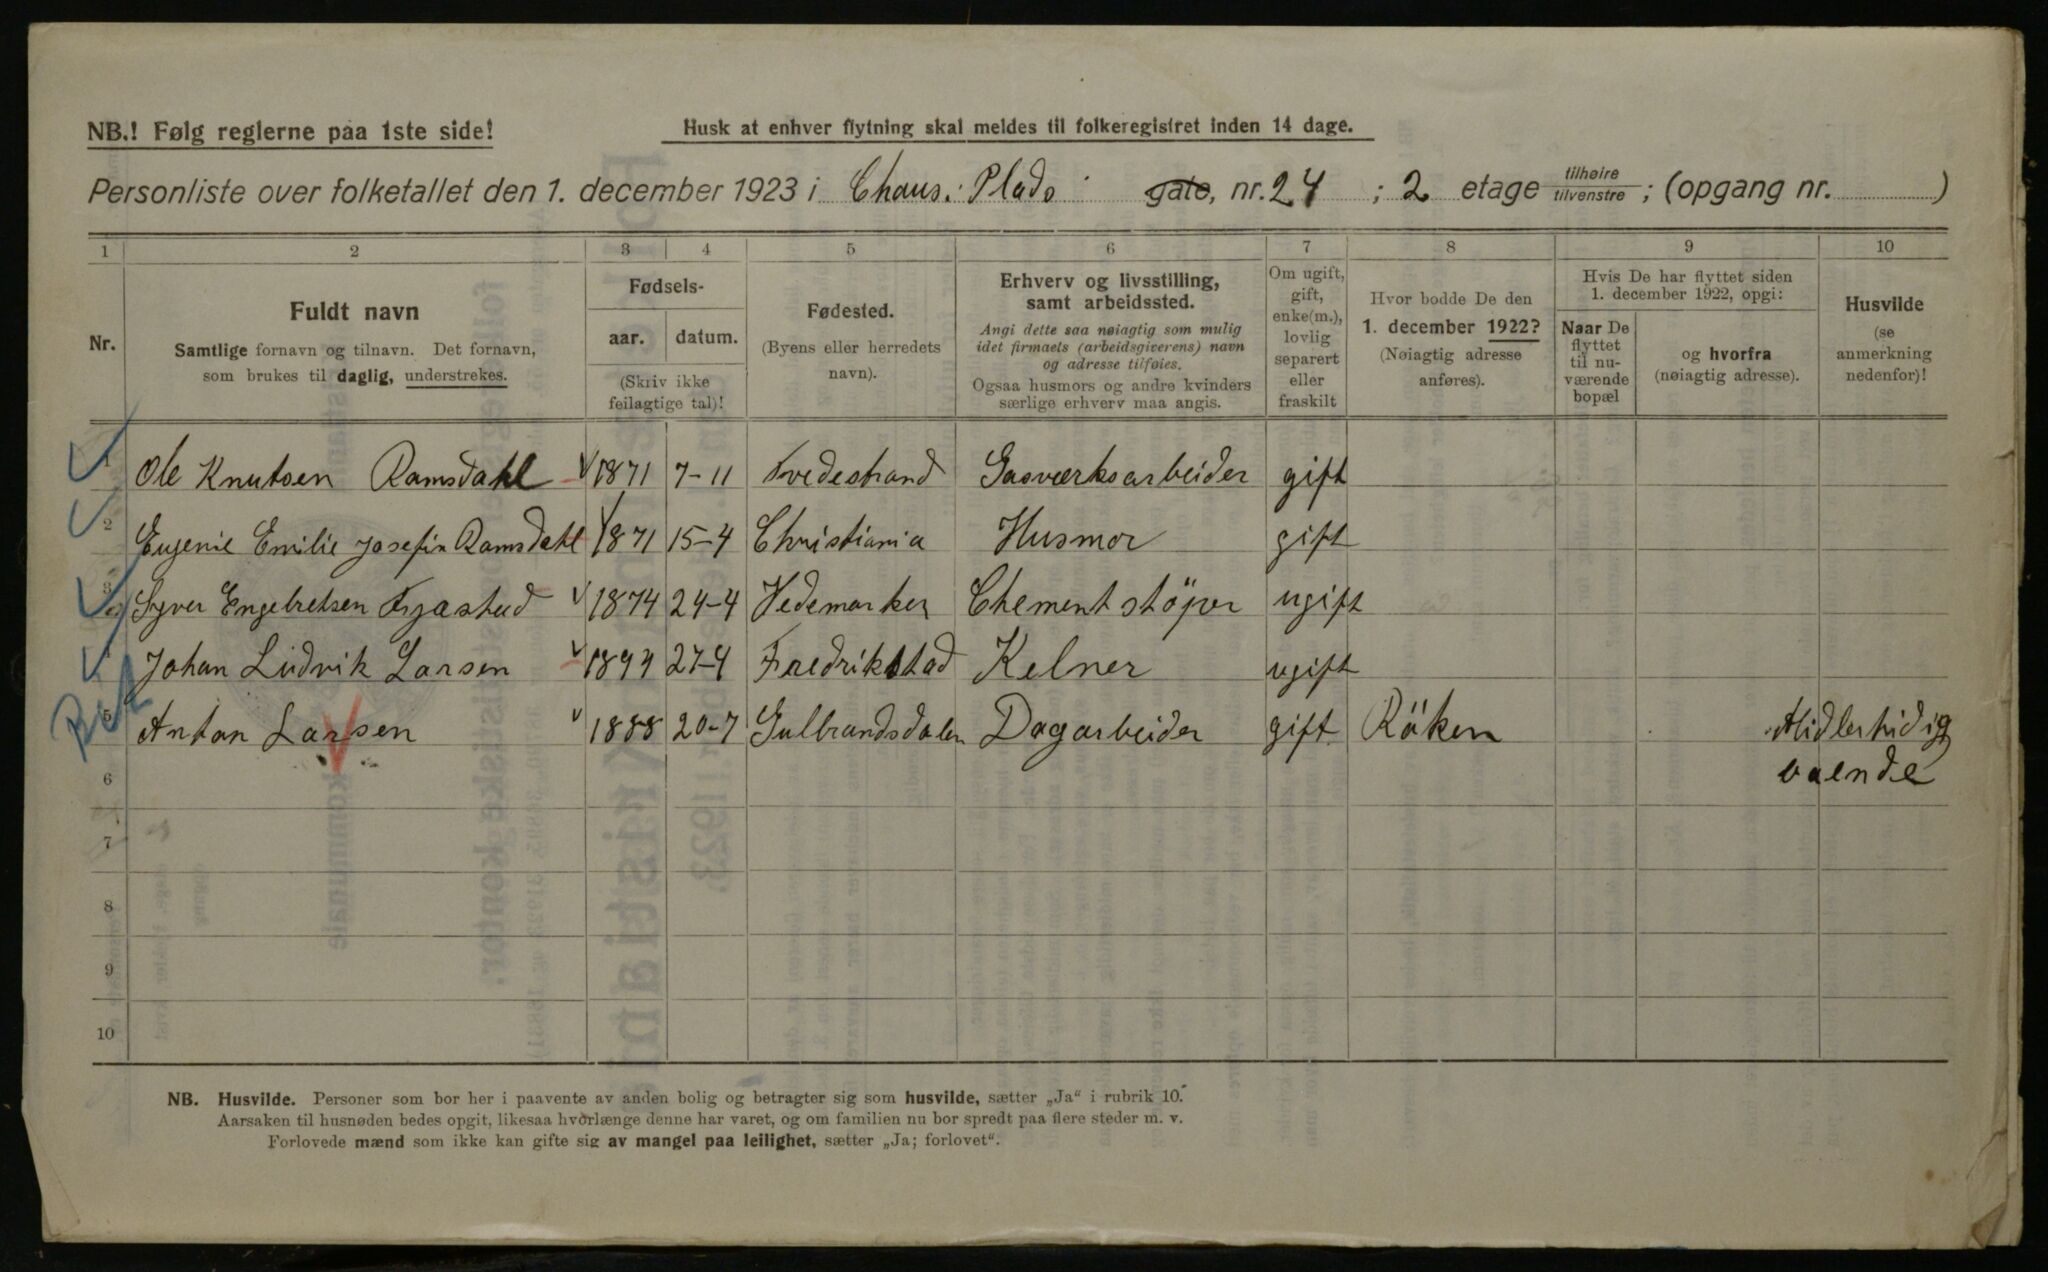 NB.! Følg reglerne paa 1ste side!
Husk at enhver flytning skal meldes til folkeregistret inden 14 dage.
Personliste over folketallet den 1. december 1923 i Chaus. Plads gate, nr. 24 ; 2 etage tilhøire tilvenstre ; (opgang nr. )
1 2 3 4 5 6 7 8 9 10
Nr.
Fuldt navn
Samtlige fornavn og tilnavn. Det fornavn,
som brukes til daglig, understrekes.
Fødsels-
aar. datum.
(Skriv ikke
feilagtige tal)!
Fødested.
(Byens eller herredets
navn).
Erhverv og livsstilling,
samt arbeidssted.
Angi dette saa nøiagtig som mulig
idet firmaets (arbeidsgiverens) navn
og adresse tilføies.
Ogsaa husmors og andre kvinders
særlige erhverv maa angis.
Om ugift,
gift,
enke(m.),
lovlig
separert
eller
fraskilt
Hvor bodde De den
1. december 1922?
(Nøiagtig adresse
anføres).
Hvis De har flyttet siden
1. december 1922, opgi:
Naar De
flyttet
til nu-
værende
bopæl
og hvorfra
(nøiagtig adresse).
Husvilde
(se
anmerkning
nedenfor)!
1 Ole Knutsen Ramsdahl 1871 7-11 Tvedestrand Gasværksarbeider gift
2 Eugenie Emilie Josefin Ramsdahl 1871 15-4 Christiania Husmor gift
3 Syver Engebretsen 1874 24-4 Hedemarken Chementstöper ugift
4 Johan Ludvik Larsen 27-4 Fredrikstad Kelner ugift
5 Antan Larsen 1888 20-7 Gulbrandsdalen Dagarbeider gift Röken Midlertidig
boende
6
7
8
9
10
NB. Husvilde. Personer som bor her i paavente av anden bolig og betragter sig som husvilde, sætter „Ja" i rubrik 10.
Aarsaken til husnøden bedes opgit, likesaa hvorlænge denne har varet, og om familien nu bor spredt paa flere steder m. v.
Forlovede mænd som ikke kan gifte sig av mangel paa leilighet, sætter „Ja; forlovet".